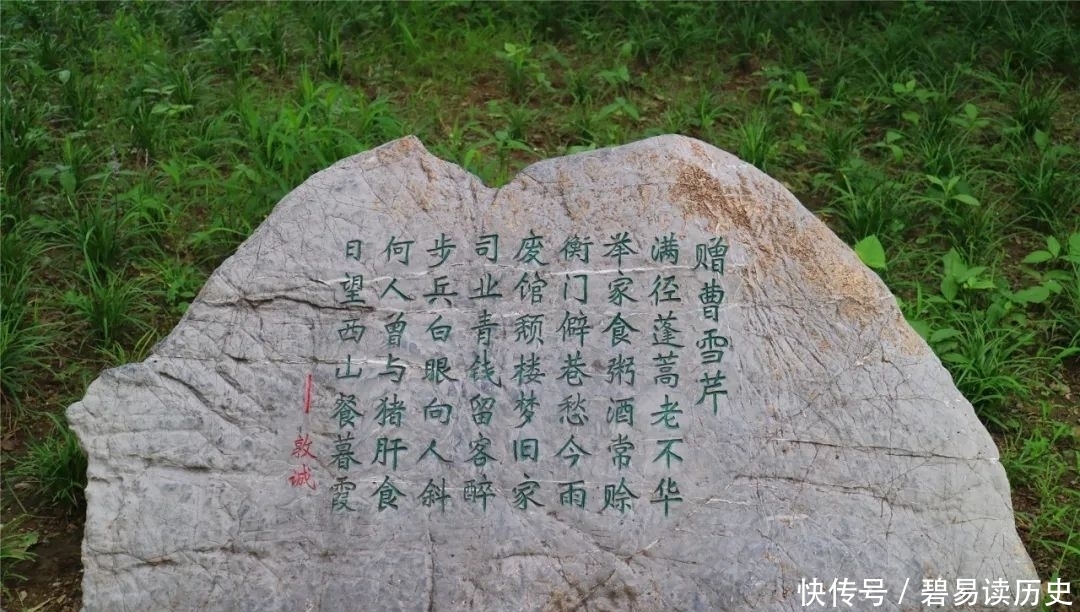 赠曹雪芹
满径蓬蒿老不华
举家食粥酒常赊
衡门僻巷愁今雨
废馆颓楼梦旧家
司业青钱留客醉
步兵白眼向人斜
何人曾与猪肝食
日望西山餐暮霞
敦诚
快传号 / 碧易读历史